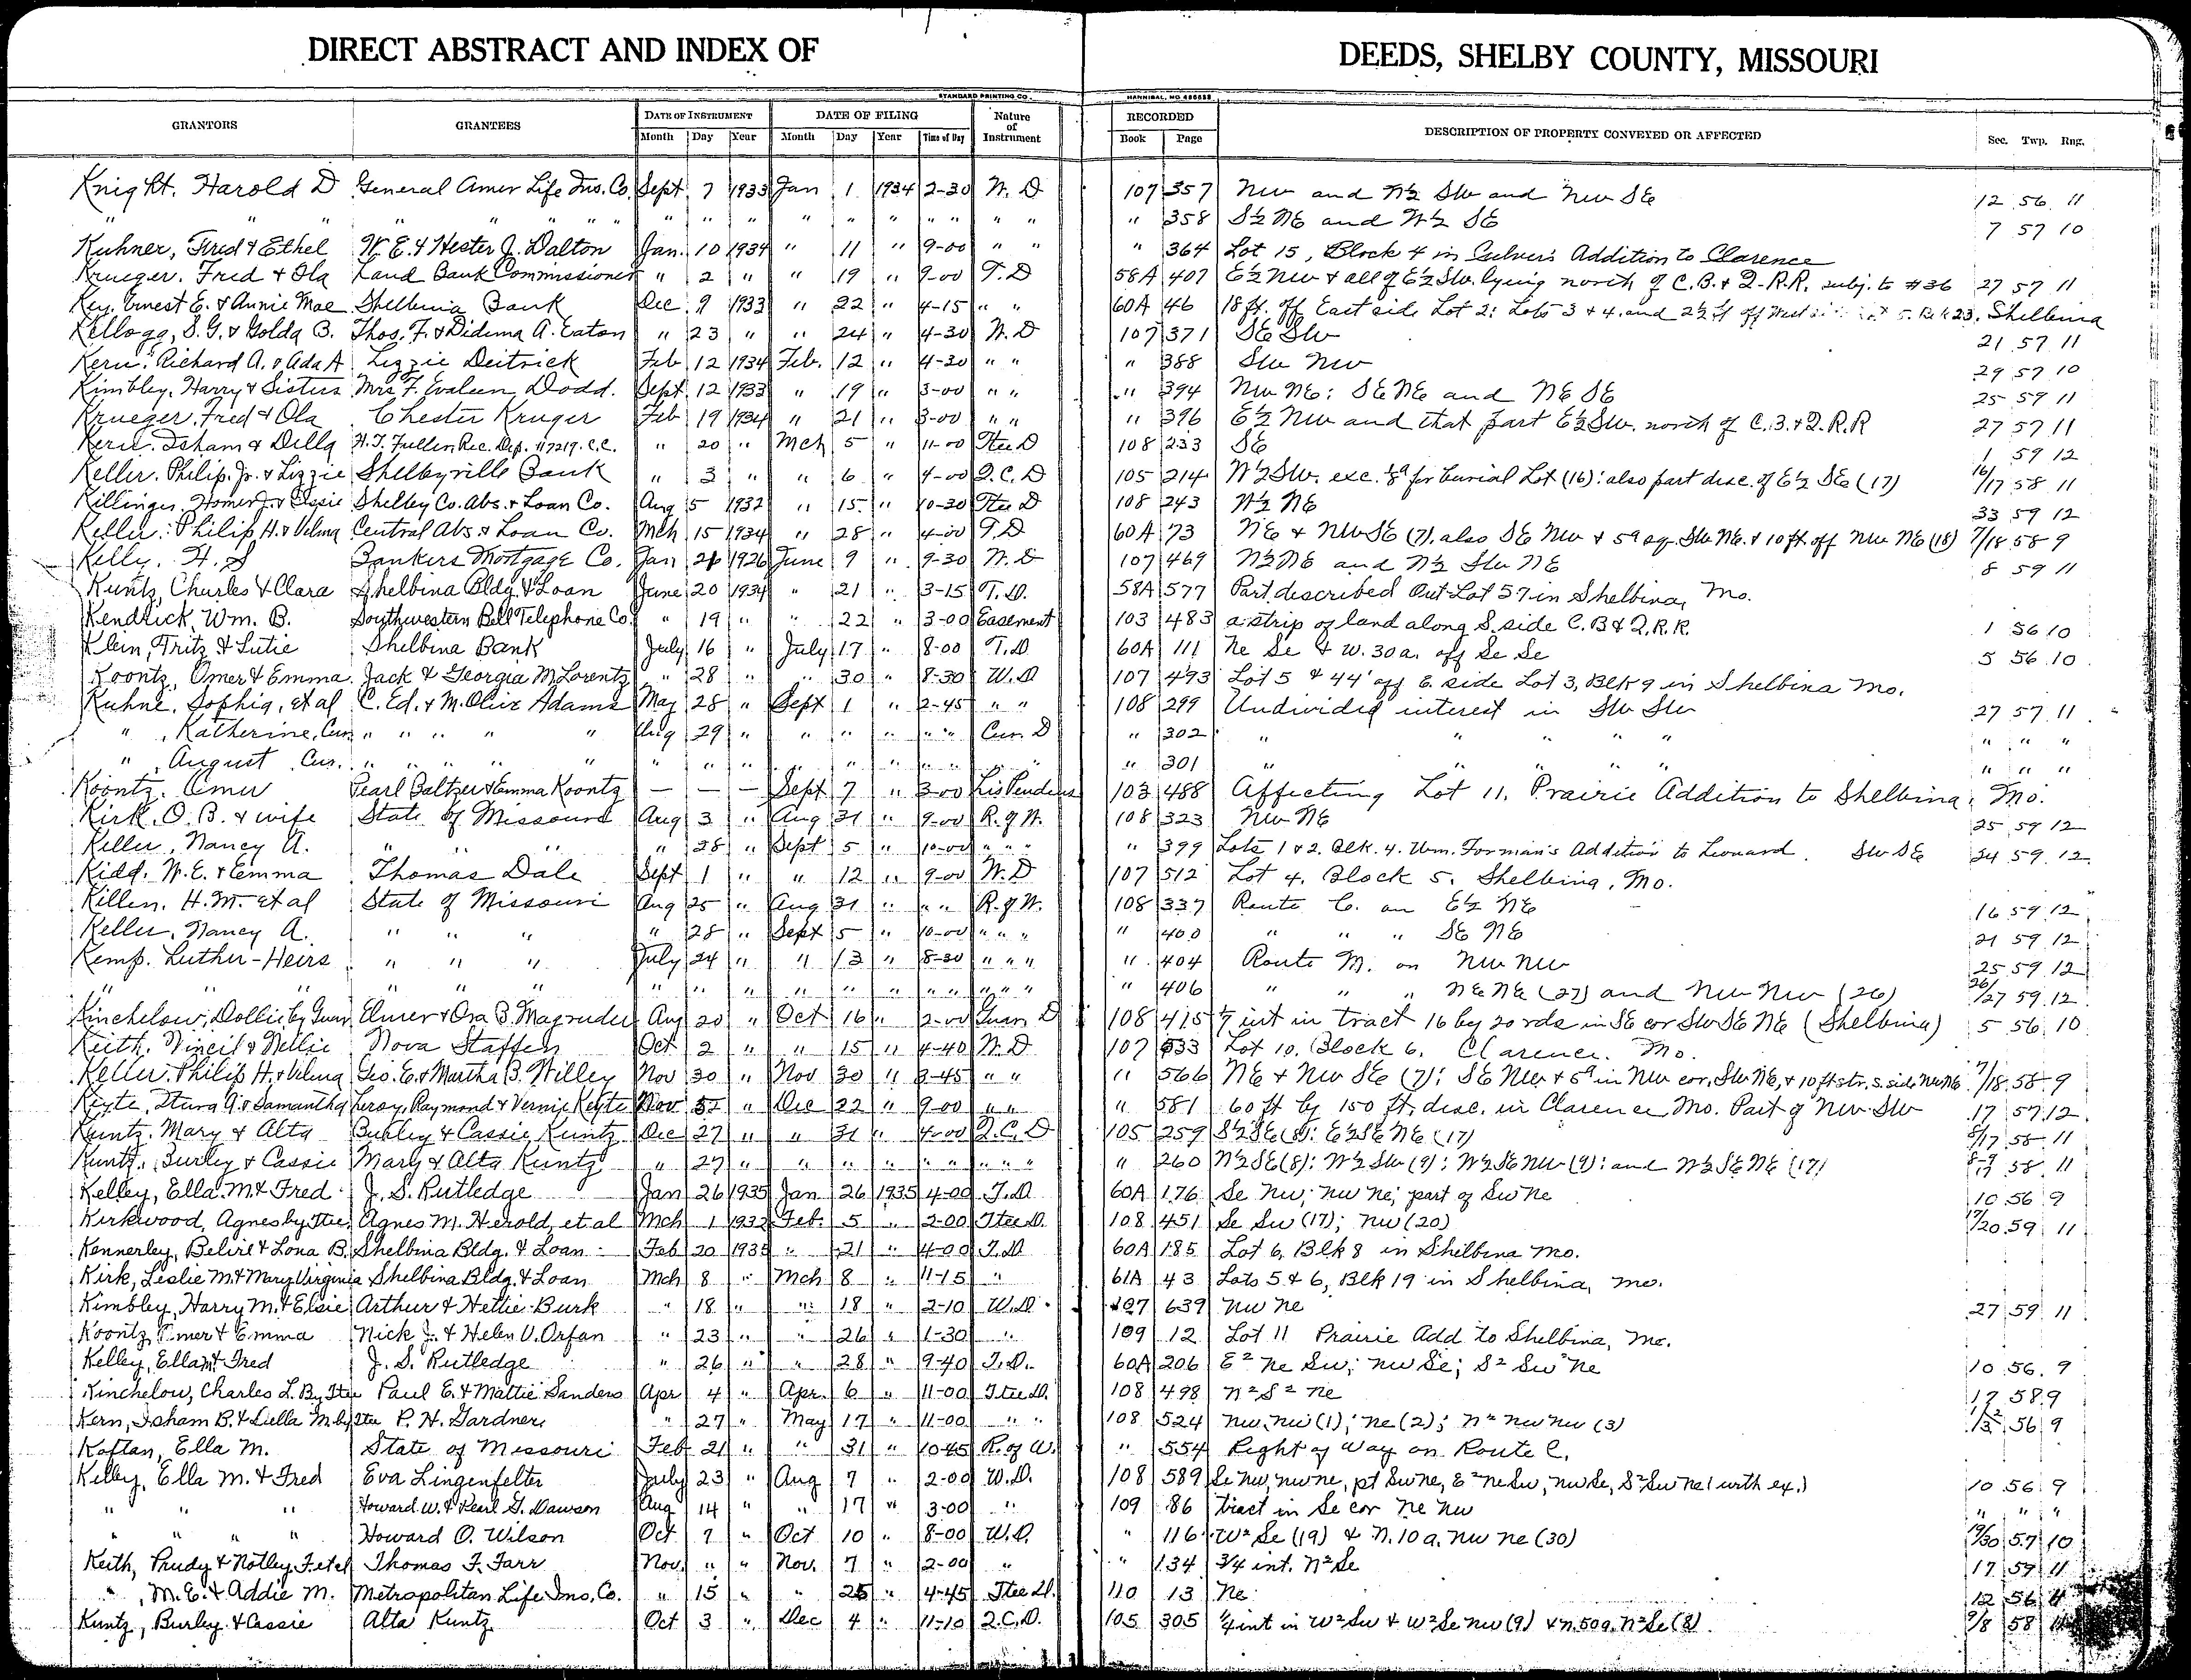 DIRECT ABSTRACT AND INDEX OF DEEDS, SHELBY COUNTY, MISSOURI
STANDARD PRINTING CO. HANNIBAL, MO.
GRANTORS GRANTEES DATE OF INSTRUMENT DATE OF FILING Nature of Instrument RECORDED DESCRIPTION OF PROPERTY CONVEYED OR AFFECTED Sec. Twp. Rng.
Month Day Year Month Day Year Time of Day Book Page
Knight. Harold D General Amer Life Ins. Co. Sept 7 1933 Jan 1 1934 2-30 W. D 107 357 NW and N½ SW and NW SE 12 56 11
" " " " " " " " " " " " " " " " " " " " 358 S½ NE and N½ SE 7 57 10
Kuhner, Fred & Ethel W. E. & Hester J. Dalton Jan. 10 1934 " 11 " 9-00 " " " 364 Lot 15, Block 4 in Culver's Addition to Clarence
Krueger. Fred & Ola Land Bank Commissioner " 2 " " 19 " 9-00 T. D 58A 407 E½ NW & all of E½ SW. lying north of C. B. & Q. R.R. subj. to #36 27 57 11
Key. Ernest E. & Annie Mae Shelbina Bank Dec 9 1933 " 22 " 4-15 " " 60A 46 18 ft. off East side Lot 2: Lots 3 & 4. and 2½ ft off West Blk 23. Shelbina
Kellogg, S. G. & Golda B. Thos. F. & Didema A. Eaton " 23 " " 24 " 4-30 W. D 107 371 SE SW 21 57 11
Kern. Richard A. & Ada A Lizzie Deitrick Feb 12 1934 Feb. 12 " 4-30 " " " 388 SW NW 29 57 10
Kimbley. Harry & Sisters Mrs F. Evaleen Dodd. Sept 12 1933 " 19 " 3-00 " " " 394 NW NE: SE NE and NE SE 25 59 11
Krueger. Fred & Ola Chester Kruger Feb 19 1934 " 21 " 3-00 " " " 396 E½ NW and that part E½ SW. north of C. B. & Q. R.R 27 57 11
Kern. Isham & Della H. T. Fuller Rec. Dep. #7219. C.C. " 20 " Mch 5 " 11-00 Ttee D 108 233 SE 1 59 12
Keller. Philip, Jr. & Lizzie Shelbyville Bank " 3 " " 6 " 4-00 Q. C. D 105 214 W½ SW. exc. ⅛ a for burial Lot (16): also part desc. of E½ SE (17) 16/17 58 11
Killinger, Homer J. & Elsie Shelby Co. Abs. & Loan Co. Aug 5 1932 " 15 " 10-30 Ttee D 108 243 W½ NE 33 59 12
Keller: Philip H. & Velma Central Abs & Loan Co. Mch 15 1934 " 28 " 4-00 T. D 60A 73 NE & NW SE (7). also SE NW & 5a sq. SW NE. & 10 ft off NW NE (18) 7/18 58 9
Kelly. H. S Bankers Mortgage Co. Jan 26 1926 June 9 " 9-30 W. D 107 469 N½ NE and N½ SW NE 8 59 11
Kuntz, Charles & Clara Shelbina Bldg. & Loan June 20 1934 " 21 " 3-15 T. D. 58A 577 Part described Out Lot 57 in Shelbina, Mo.
Kendrick, Wm. B. Southwestern Bell Telephone Co. " 19 " " 22 " 3-00 Easement 103 483 a strip of land along S. side C. B & Q. R. R. 1 56 10
Klein, Fritz & Lutie Shelbina Bank July 16 " July 17 " 8-00 T. D 60A 111 Ne Se & W. 30 a. off Se Se 5 56 10
Koontz, Omer & Emma Jack & Georgia M. Lorentz " 28 " " 30 " 8-30 W. D 107 493 Lot 5 & 44' off E. side Lot 3, Blk 9 in Shelbina Mo.
Kuhne, Sophia, et al C. Ed. & M. Olive Adams May 28 " Sept 1 " 2-45 " " 108 299 Undivided interest in SW SW 27 57 11
" , Katherine, Cur. " " " " " Aug 29 " " " " " " Cur. D " 302 " " " " " " " "
" , August Cur. " " " " " " " " " " " " " " " 301 " " " " " " " "
Koontz. Omer Pearl Baltzer & Emma Koontz — — — Sept 7 " 3-00 Lis Pendens 103 488 Affecting Lot 11. Prairie Addition to Shelbina, Mo.
Kirk. O. B. & wife State of Missouri Aug 3 " Aug 31 " 9-00 R. of W. 108 323 NW NE 25 59 12
Keller, Nancy A. " " " " 28 " Sept 5 " 10-00 " " " " 399 Lots 1 & 2. Blk. 4. Wm. Forman's Addition to Leonard. SW SE 24 59 12
Kidd. W. E. & Emma Thomas Dale Sept 1 " " 12 " 9-00 W. D 107 512 Lot 4, Block 5. Shelbina, Mo.
Killen. H. M. et al State of Missouri Aug 25 " Aug 31 " " " R. of W. 108 337 Route C. on E½ NE 16 59 12
Keller, Nancy A. " " " " 28 " Sept 5 " 10-00 " " " " 400 " " " SE NE 21 59 12
Kemp. Luther-Heirs " " " July 24 " " 13 " 8-30 " " " " 404 Route M. on NW NW 25 59 12
" " " " " " " " " " " " " " " " " " 406 " " " NE NE (27) and NW NW (26) 26/27 59 12
Kinchelow, Dollie by Guar Elmer & Ora B. Magruder Aug 20 " Oct 16 " 2-00 Guar. D 108 415 1/7 int in tract 16 by 20 rds in SE cor SW SE NE (Shelbina) 5 56 10
Keith. Vincil & Nellie Nova Staffen Oct 2 " " 15 " 4-40 W. D 107 533 Lot 10. Block 6. Clarence. Mo.
Keller. Philip H. & Velma Geo. E. & Martha B. Willey Nov 30 " Nov 30 " 3-45 " " " 566 NE & NW SE (7): SE NW & 5a in NW cor. SW NE, & 10 ft str. S. side NW NE 7/18 58 9
Keyte, & Samantha Leroy, Raymond & Vernie Keyte Nov " Dec 22 " 9-00 " " " 581 60 ft by 150 ft. desc. in Clarence Mo. Part of NW SW 17 57 12
Kuntz. Mary & Alta Burley & Cassie Kuntz Dec 27 " " 31 " 4-00 Q. C. D 105 259 S½ SE (8): E½ SE NE (17) 8/17 58 11
Kuntz., Burley & Cassie Mary & Alta Kuntz " 27 " " " " " " " " " " 260 N½ SE (8): W½ SW (9): W½ SE NW (9): and W½ SE NE (17) 8-9/17 58 11
Kelley, Ella. M. & Fred J. S. Rutledge Jan 26 1935 Jan 26 1935 4-00 T. D 60A 176 Se Nw; Nw Ne; part of Sw Ne 10 56 9
Kirkwood, Agnes by Ttee. Agnes M. Herold, et al Mch 1 1932 Feb. 5 " 2-00 Ttee D. 108 451 Se Sw (17); NW (20) 17/20 59 11
Kennerley, Belvie & Lona B. Shelbina Bldg. & Loan Feb 20 1935 " 21 " 4-00 T. D 60A 185 Lot 6, Blk 8 in Shelbina Mo.
Kirk, Leslie M. & Mary Virginia Shelbina Bldg. & Loan Mch 8 " Mch 8 " 11-15 " 61A 43 Lots 5 & 6, Blk 19 in Shelbina, Mo.
Kimbley, Harry M. & Elsie Arthur & Hettie Burk " 18 " " 18 " 2-10 W. D. 107 639 Nw Ne 27 59 11
Koontz, Omer & Emma Nick J. & Helen V. Orfan " 23 " " 26 " 1-30 " 109 12 Lot 11 Prairie Add to Shelbina, Mo.
Kelley, Ella M & Fred J. S. Rutledge " 26 " " 28 " 9-40 T. D. 60A 206 E² Ne Sw; Nw Se; S² Sw Ne 10 56 9
Kinchelow, Charles L. By Ttee Paul E. & Mattie Sanders Apr 4 " Apr. 6 " 11-00 Ttee D. 108 498 N² S² Ne 17 58 9
Kern, Isham B. & Luella M. by Ttee P. H. Gardner " 27 " May 17 " 11-00 " " 108 524 Nw, Nw (1); Ne (2); N² Nw Nw (3) 1/2/3 56 9
Koftan, Ella M. State of Missouri Feb 21 " " 31 " 10-45 R. of W. " 554 Right of Way on Route C.
Kelley, Ella M. & Fred Eva Lingenfelter July 23 " Aug 7 " 2-00 W. D. 108 589 Se Nw, Nw Ne, pt Sw Ne, E² Ne Sw, Nw Se, S² Sw Ne (with ex.) 10 56 9
" " " Howard W. & Pearl G. Dawson Aug 14 " " 17 " 3-00 " 109 86 tract in Se cor Ne Nw " " "
" " " " Howard O. Wilson Oct 7 " Oct 10 " 8-00 W. D. " 116 W² Se (19) & N. 10 a. Nw Ne (30) 19/30 57 10
Keith, Prudy & Notley F. et al Thomas F. Farr Nov. " " Nov. 7 " 2-00 " " 134 3/4 int. N² Se 17 59 11
" , M. E. & Addie M. Metropolitan Life Ins. Co. " 15 " " 25 " 4-45 Ttee D. 110 13 Ne 12 56 11
Kuntz, Burley & Cassie Alta Kuntz Oct 3 " Dec 4 " 11-10 Q. C. D. 105 305 ¼ int in W² Sw & W² Se Nw (9) & N. 50 a. N² Se (8) 9/8 58 11